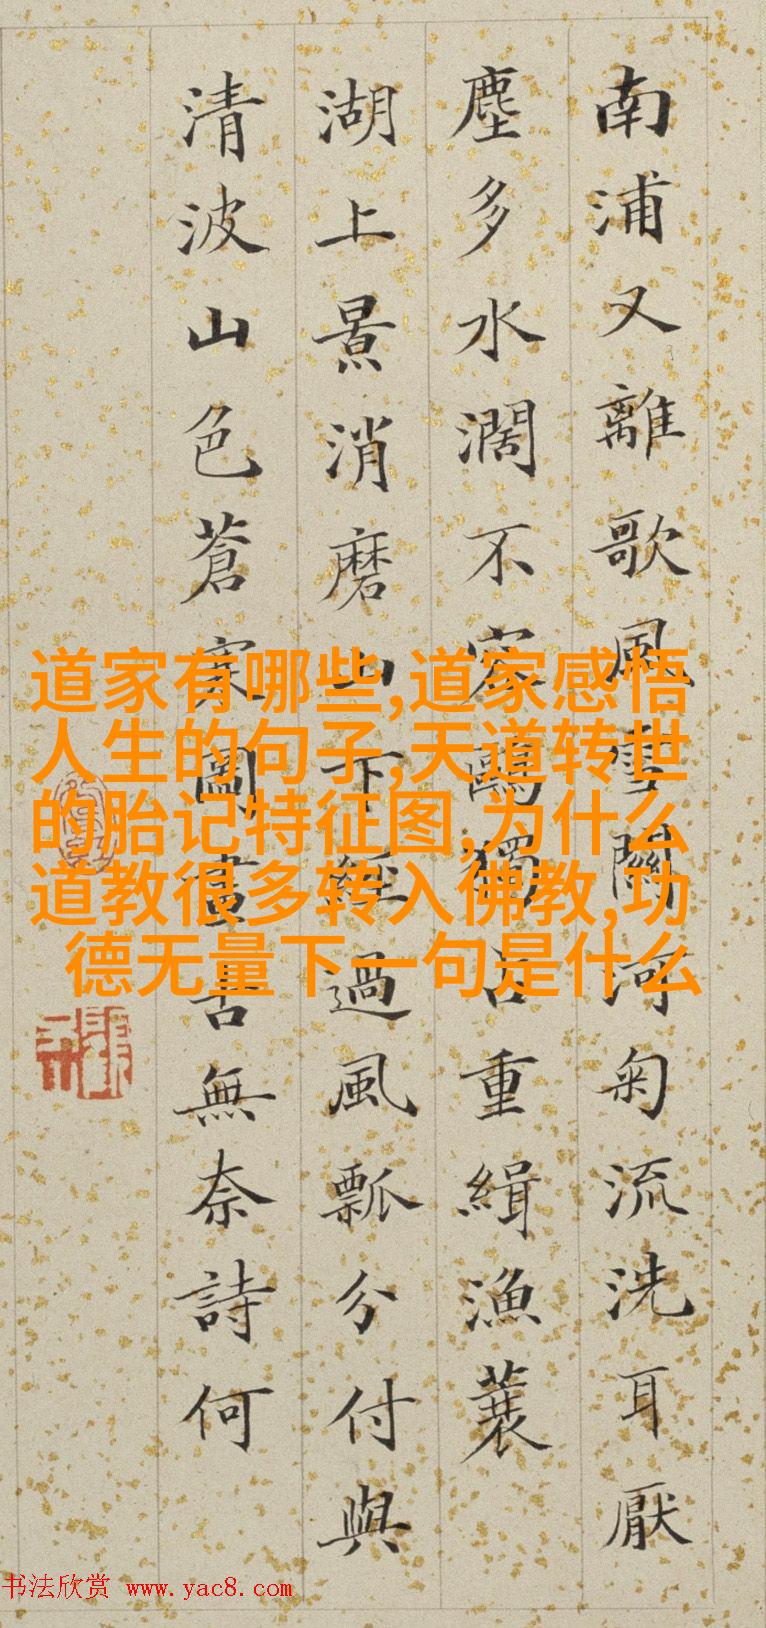 南浦又離歌風雪關河菊流洗耳厭
塵多水濶不容鷗獨占重緝漁蓑
湖上景消磨山下經過風瓢分付與
清波山色蒼寒圖畫古無奈詩何
道家有哪些,道家感悟
人生的句子,天道转世
的胎记特征图,为什么
道教很多转入佛教,功
德无量下一句是什么
书法欣赏 www.yac8.com